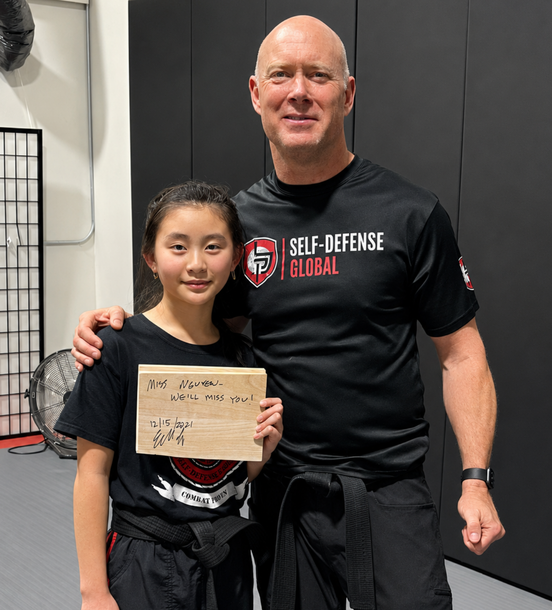 SELF-DEFENSE
GLOBAL
MISS NGUYEN-
WE'LL MISS YOU!
12/15/2021
COMBAT